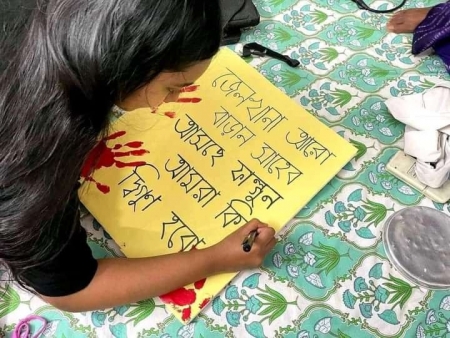 জেলখানা আরো
বাড়ান সাহেব
আসছে ফাল্গুন
আমরা কিন্তু
দ্বিগুণ হবো